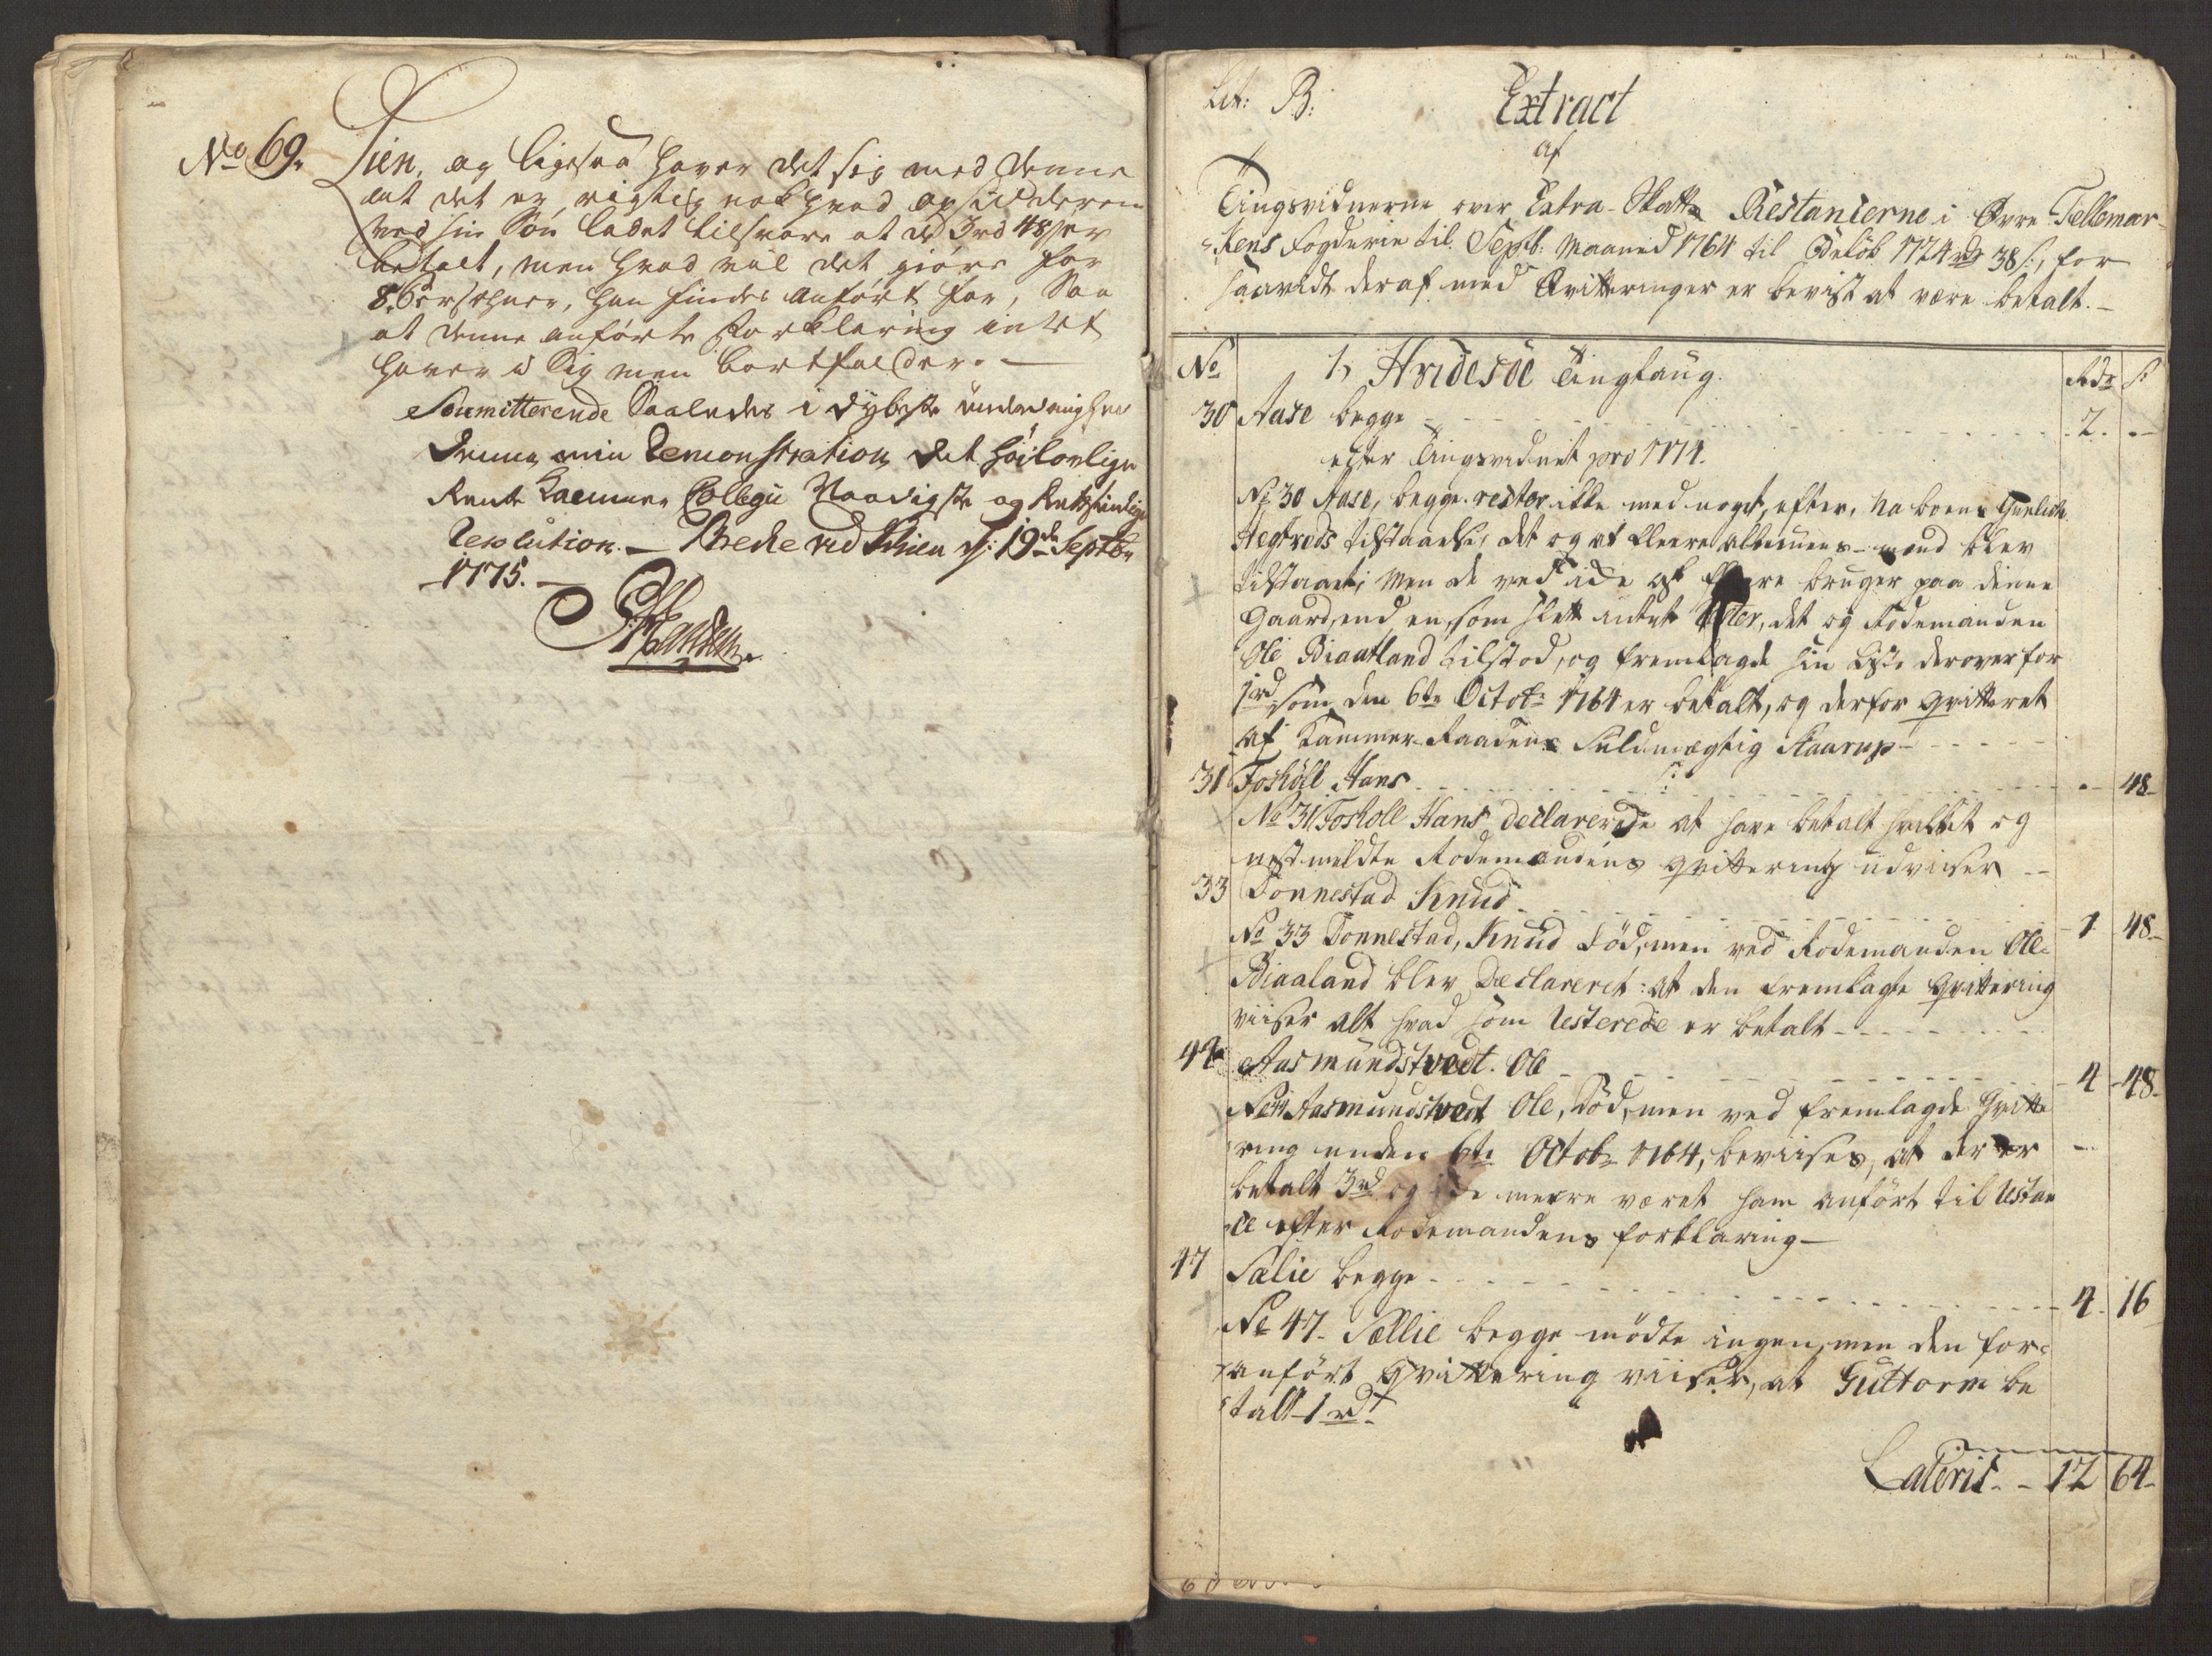 No 69. Lien, og ligesaa haver det sig med denne
at det er rigtig nok hvad opsidderen
ved sin Søn ladet tilsvare at de 3rd 48s er
betalt, men hvad vil det giøre for
8. Persohner, han findes anført for, Saa
at denne anførte Forklaring intet
haver i Sig men bortfalder. —
Soumitterende Saaledes i dybeste underdanighed
denne min Demonstration det høilovlige
Rente Kammer Collegii Naadigste og Retsindige
Resolution. — Brecke ved Schien d: 19de Septbr
1775. —
Lit: B: Extract
af
Tingsvidnerne over Extra-Skatte Restancerne i Øvre Tellemar-
kens Fogderie til Septb: Maaned 1764 til Beløb 1724 rdr 38 s:, for
saavidt deraf med Qvitteringer er bevist at være betalt. —
No 1, Hvidesøe Tinglaug. Rdr s
30 Aase begge - - - 2. - -
efter Tingsvidnet pro 1774.
No 30 Aase, begge rester ikke med noget, efter, Naboens
tilstaaelse, det og af fleere Almuens-mænd blev
tilstaaet; men de ved icke at fleere bruger paa denne
Gaard, end en, som slett intet Rester, det og Rodemanden
Ole Biaaland tilstod, og fremlagde sin Liste derover for
1rd som den 6te Octobr 1764 er betalt, og derfor qvitteret
af Kammer-Raadens Fuldmægtig Kaarup - - -
31 Foshöll Hans - - - - - 48 -
No 31 Foshöll Hans declarerede at have betalt hvilket og
nestmeldte Rodemandens qvittering udviiser - -
33 Tonnestad Knud - - - 1 48 -
No 33 Tonnestad, Knud død, men ved Rodemanden Ole
Biaaland blev Declareret: at den fremlagte Qvittering
viiser alt hvad som Resterede er betalt - - -
44 Aasmundstvedt. Ole - - - 4 - 48 -
No 44 Aasmundstvedt Ole, død, men ved fremlagde Qvitte
ring under 6te Octobr 1764, beviises, at der er
betalt 3rd og icke meere været ham anført til Restan
ce efter Rodemandens forklaring —
47 Sælie begge - - - 4. 16
No 47 - Sællie begge mødte ingen, men den for-
anført Qvittering viiser, at Guttorm be
talt 1 rd
Lateris - - 12 64 -